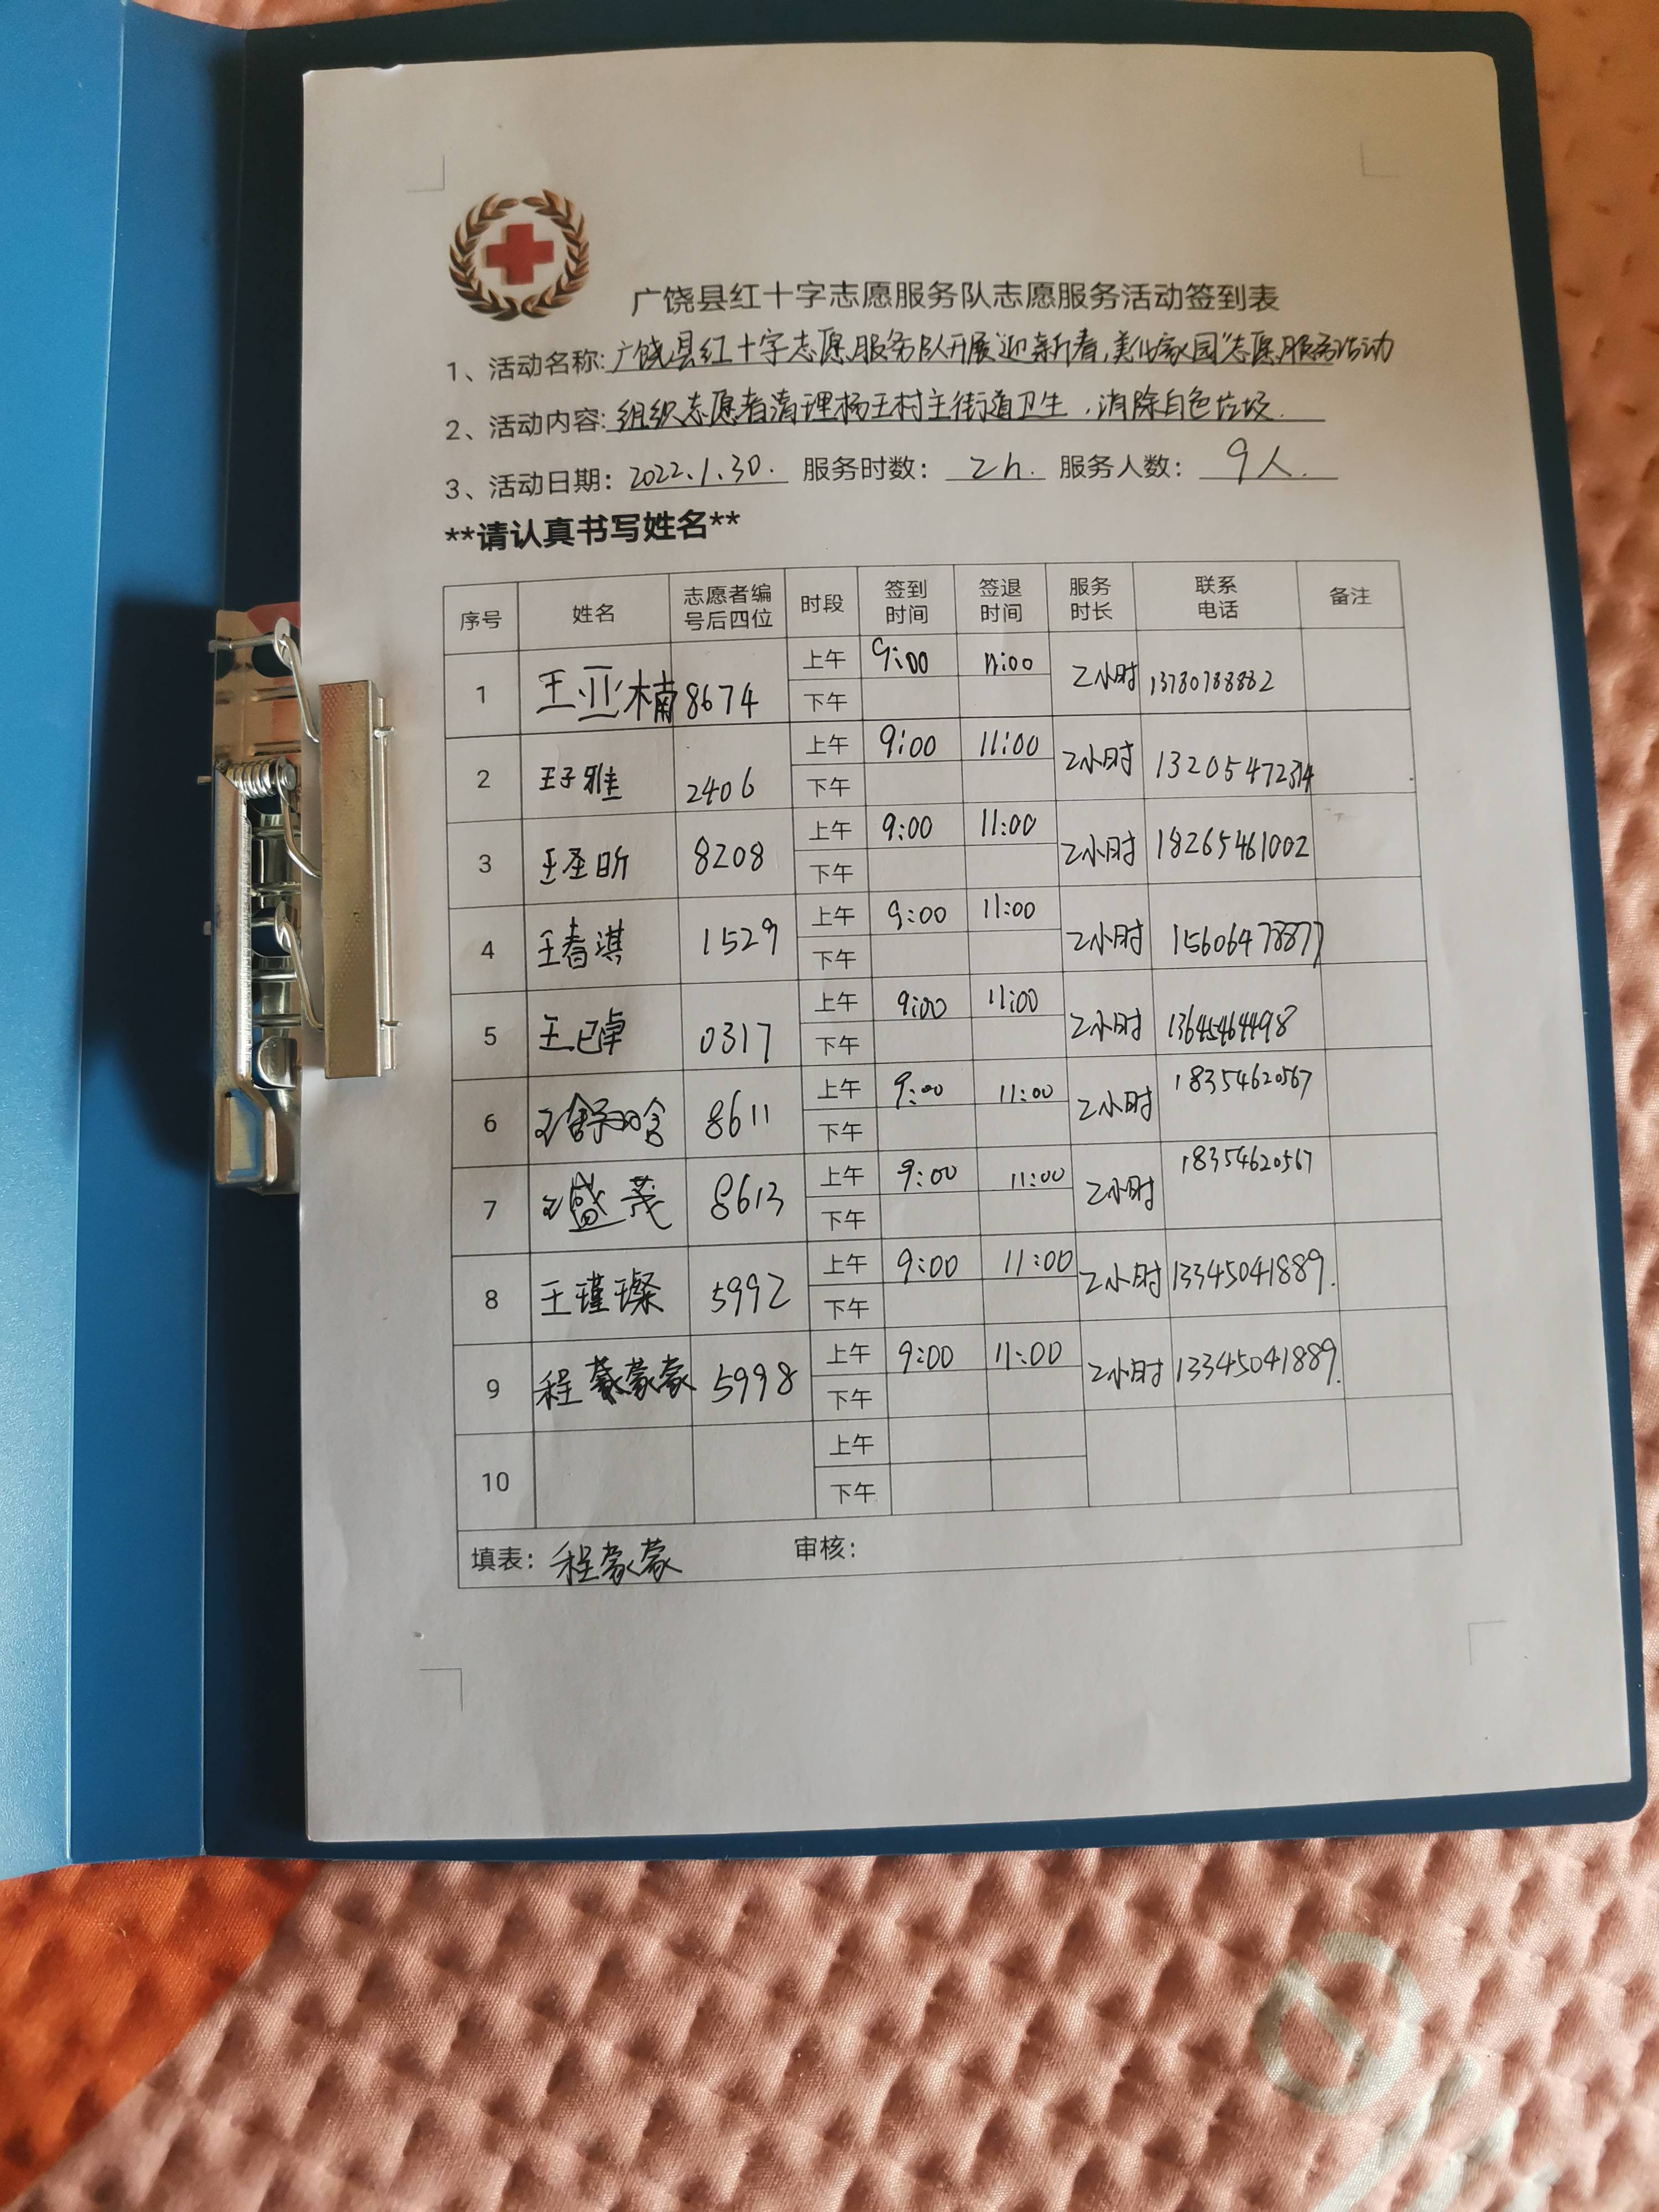 广饶县红十字志愿服务队志愿服务活动签到表
1、活动名称:广饶县红十字志愿服务队开展"迎新春,美化家园"志愿服务活动
2、活动内容:组织志愿者清理杨王村主街道卫生,消除白色垃圾.
3、活动日期:2022.1.30. 服务时数:2h. 服务人数:9人.
**请认真书写姓名**
序号 姓名 志愿者编号后四位 时段 签到时间 签退时间 服务时长 联系电话 备注
1 王亚楠 8674 上午 9:00 11:00 2小时 13780788882
下午
2 王子雅 2406 上午 9:00 11:00 2小时
下午
3 王圣昕 8208 上午 9:00 11:00 2小时 18265461002
下午
4 王春淇 1529 上午 9:00 11:00 2小时 15606478877
下午
5 王已卓 0317 上午 9:00 11:00 2小时 13645464498
下午
6 王舒晗 8611 上午 9:00 11:00 2小时 18354620567
下午
7 王盛茂 8613 上午 9:00 11:00 2小时 18354620567
下午
8 王瑾璨 5992 上午 9:00 11:00 2小时 13345041889.
下午
9 程蒙蒙 5998 上午 9:00 11:00 2小时 13345041889.
下午
10 上午
下午
填表:程蒙蒙 审核: